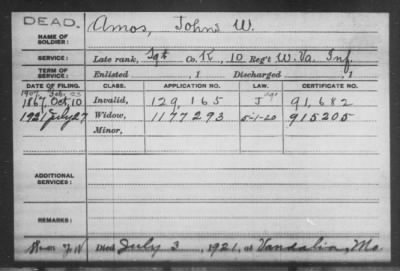 DEAD.
NAME OF SOLDIER: Amos, John W.
SERVICE: Late rank, Sgt Co. K, 10 Reg't W. Va. Inf.
TERM OF SERVICE: Enlisted , 1 Discharged , 1
DATE OF FILING. CLASS. APPLICATION NO. LAW. CERTIFICATE NO.
1907 Feb. 25
1867, Oct, 10 Invalid, 129,165 91,682
1921 July 27 Widow, 1177293 5-1-20 915205
Minor,
ADDITIONAL SERVICES:
REMARKS:
Died July 3, 1921, at Vandalia, Mo